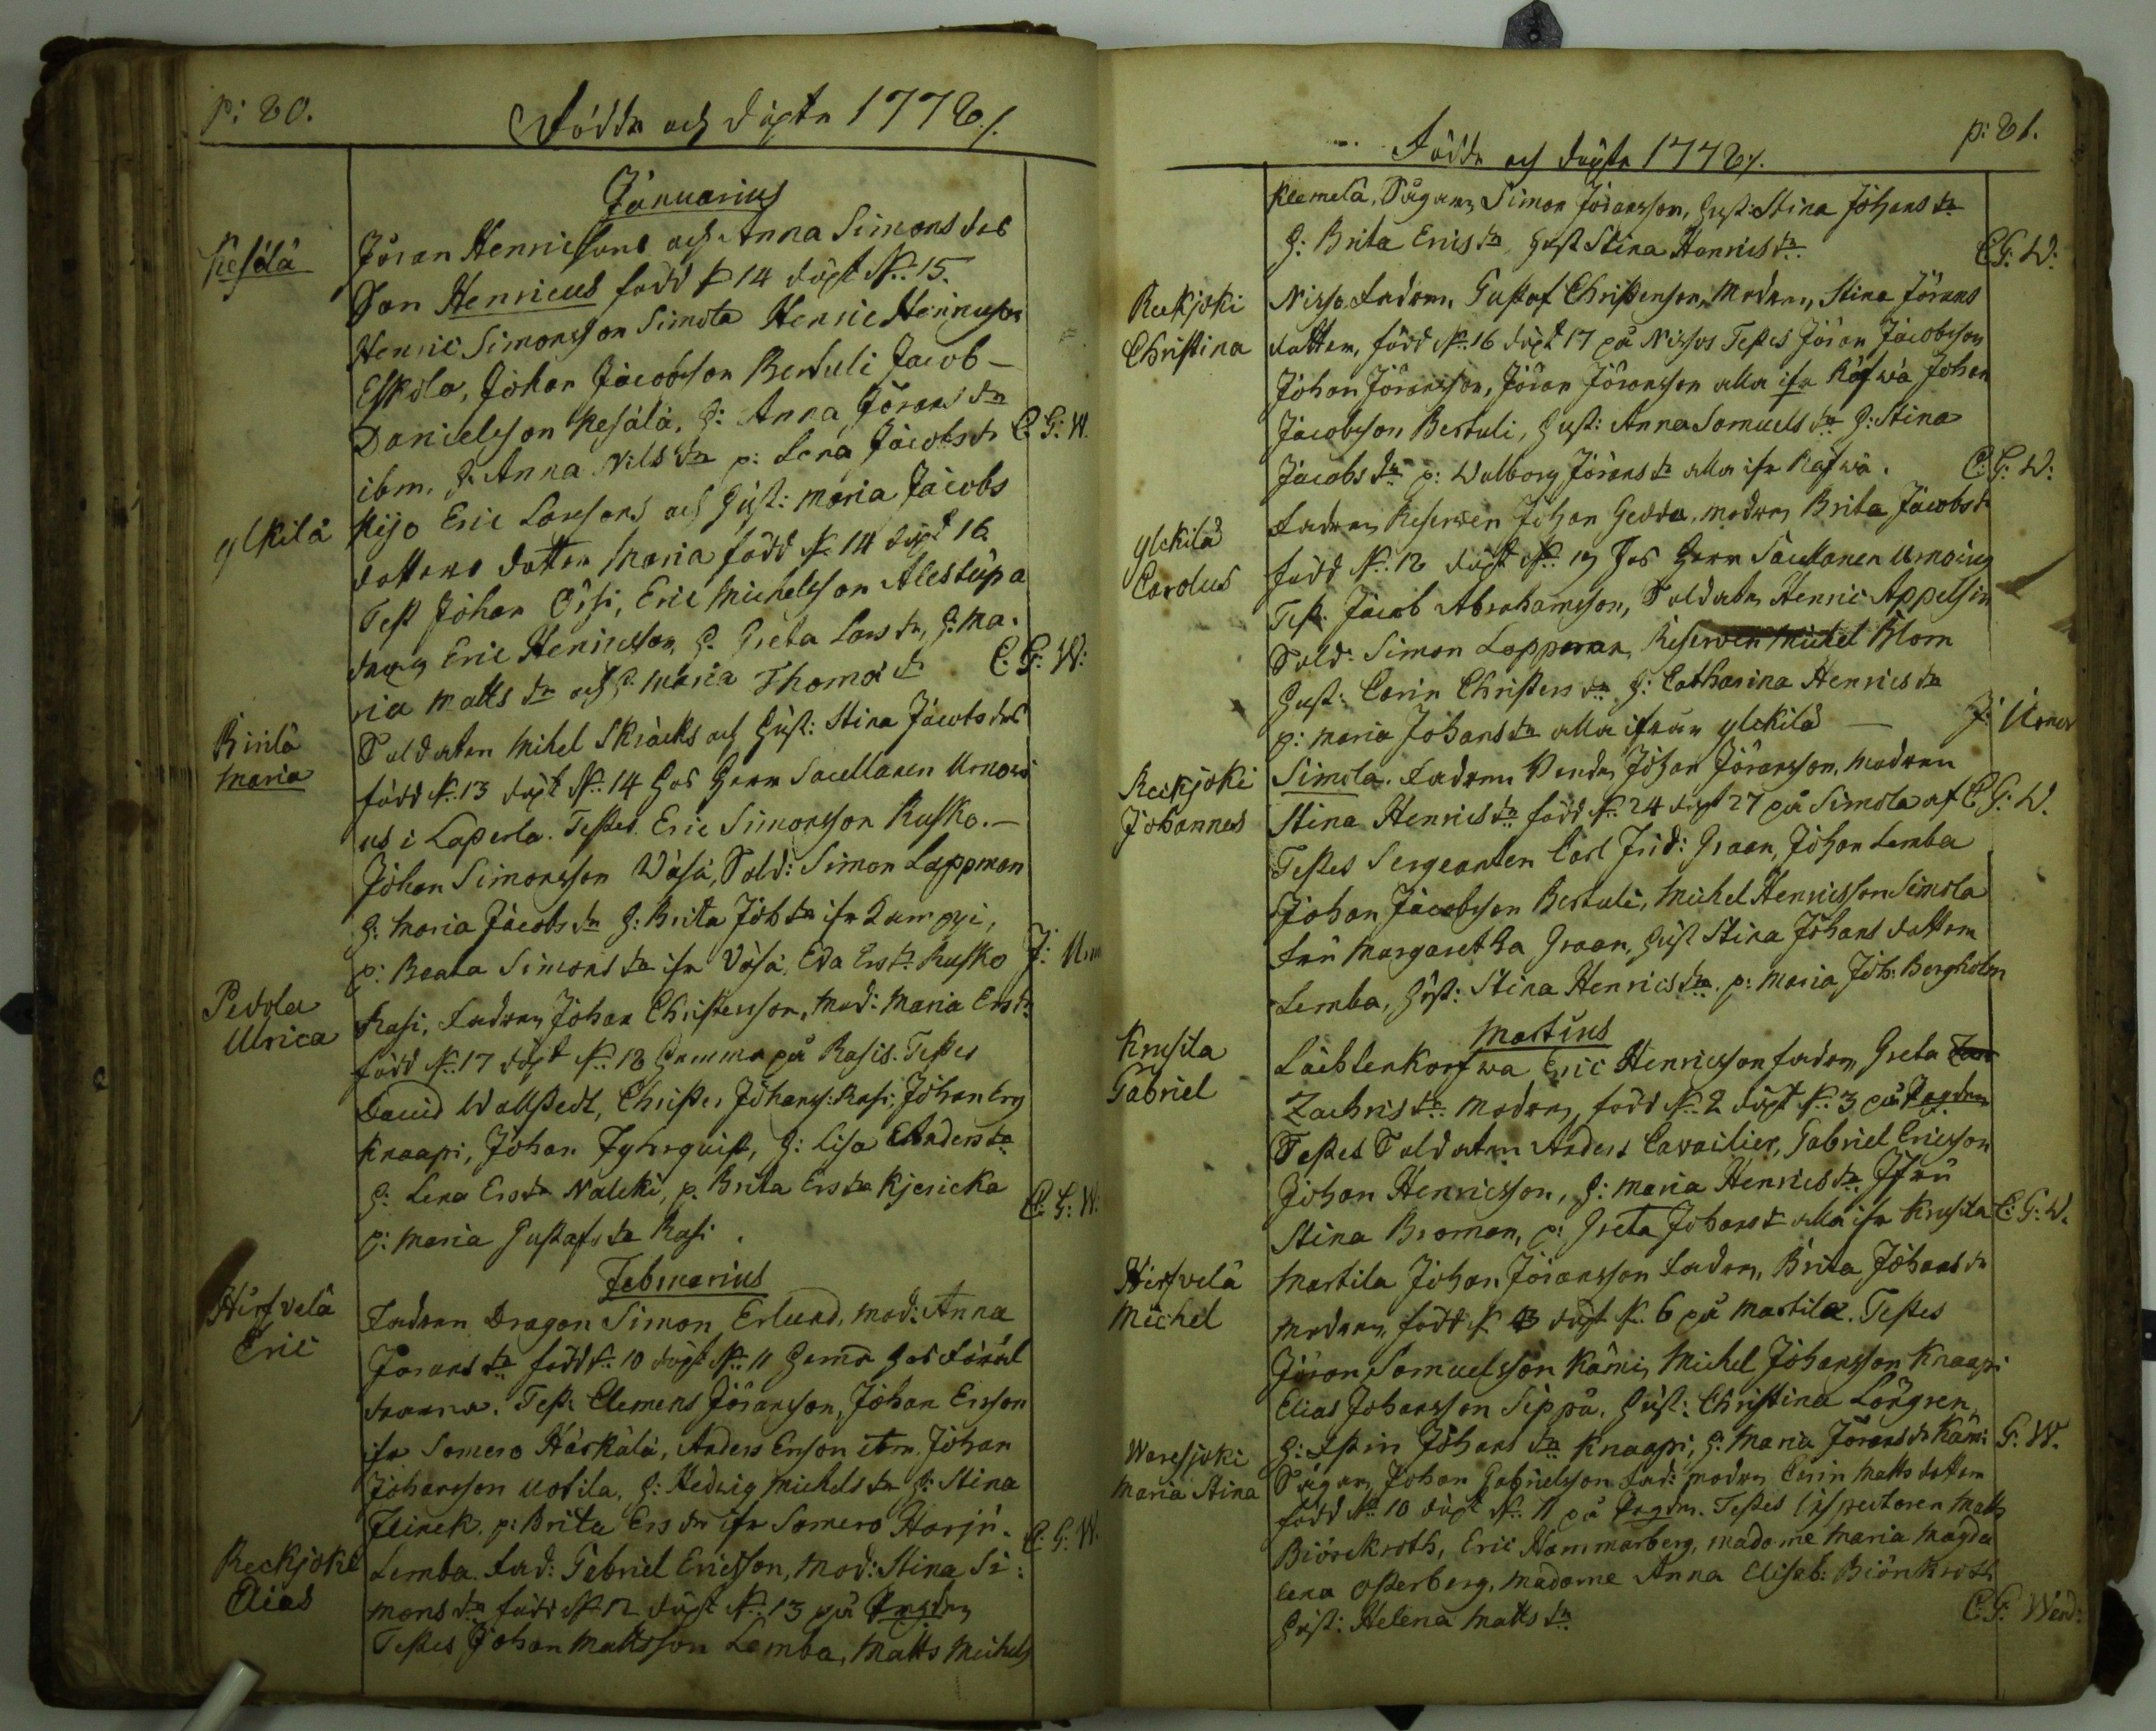 p: 80.
Födde och döpte 1778/.
Januarius
Kesälä Jöran Henricsons och Anna Simons drs
Son Henricus född d 14 döpt N: 15.
Henric Simonsson Simola Henric Henricsson
Eskola, Johan Jacobsson Bertuli Jacob –
Danielsson Kesälä, H: Anna Jörans dr
ibm. H: Anna Nils dr p: Lena Jacobs dr C: G: W.
ylkilä Kijo Eric Larssons och Hust: Maria Jacobs
dotters dotter Maria född N 14 döpt 16
Test Johan Örsi, Eric Michelsson Alestupa
dräng Eric Henricsson, H. Greta Lars dr, H: Ma-
ria Matts dr och p. Maria Thomæ dr C: G: W:
Maria Soldaten Mihel Skräcks och Hust: Stina Jacobs drs
född N: 13 döpt N: 14 hos Herr Sacellanen Urnovi
us i Laperla. Testes Eric Simonsson Rusko. –
Johan Simonsson Wäsä, Sold: Simon Lappman
H: Maria Jacobs dr H: Brita Joh dr ifr
p: Beata Simons dr ifr Väsä, Eva Ers dr Rusko J: Urn
Pedola Rasi, Fadren Johan Christersson, Mod: Maria Ers dr
Ulrica född N: 17 döpt N: 18 hemma på Rasis. Testes
David Wallstedt, Christer Johanss: Rasi, Johan Ers
Knaapi, Johan Fyhrquist, H: Lisa Anders dr
H: Lena Ers dr Naleki, p. Brita Ers dr Kjericka C: G: W.
p: Maria Gustafs dr Rasi.
Februarius
Hirfvelä Fadren Dragon Simon Erlund, mod: Anna
Eric Jörans dr född N: 10 döpt N: 11 hema hos föräl
drarna. Test: Clemens Jöransson, Johan Ersson
ifr Somero Härkälä, Anders Ersson ibm. Johan
Johansson Uotila, H: Hedvig Michels dr H: Stina
Flinck. p: Brita Ers dr ifr Somero Harju. C: G: W.
Reckjoki Lemba. Fad: Gabriel Ericsson, Mod: Stina Si:
Elias mons dr född N 12 döpt N: 13 på Prgdn
Testes Johan Mattsson Lemba, Matts Michels
p: 81.
Födde och döpte 1778/.
Klemelä, Simon Jöransson, Hust: Stina Johans dr
H: Brita Erics dr Hust Stina Henrics dr C: G: W:
Reckjoki Nisso. Fadren, Gustaf Christersson, Modren, Stina Jörans
Christina dotter, född N: 16 döpt 17 på Nissos Testes Jöran Jacobsson
Johan Jöransson, Jöran Jöransson alla ifr Räfwä Johan
Jacobsson Bertuli, Hust: Anna Samuels dr H: Stina
Jacobs dr p: Walborg Jörans dr alla ifr Räfwä. C: G: W:
ylckilä Fadren Reserven Johan Gedda, modren Brita Jacobs dr
Carolus född N: 18 döpt N: 19 hos Herr Sacellanen Urnovius
Test: Jacob Abrahamsson, Soldaten Henric Appelsin
Sold: Simon Lappman, Reserven Michel Blom
Hust: Carin Christers dr H: Catharina Henrics dr
p: Maria Johans dr alla ifrån ylckilä – J: Urnov
Reckjoki Simola. Fadren Johan Jöransson, Modren
Johannes Stina Henrics dr född N: 24 döpt 27 på Simola af C: G: W.
Testes Sergeanten Carl Frid: Graan, Johan Lemba
Johan Jacobsson Bertuli, Michel Henricsson Simola
Fru Margaretha Graan, Hust Stina Johans dotter
Lemba, Hust: Stina Henrics dr. p: Maria Joh: Bergholm
Martius
Krusila Lächtenkorfwa Eric Henricsson fadren, Greta
Gabriel Zachris dr Modren, född N: 2 döpt N: 3 på Prgdn
Testes Soldaten Anders Cavailier, Gabriel Ericsson
Johan Henricsson, H: Maria Henrics dr Jfru
Stina Broman, p: Greta Johans dr alla ifr Krusila C: G: W.
Hirfvelä Martila Johan Jöransson Fadren, Brita Johans dr
Michel Modren, född N döpt N. 6 på Martila. Testes
Jöran Samuelsson Kämi, Michel Johansson Knaapi
Elias Johansson Sippu. Hust: Christina Lörgren,
H: Johans dr Knaapi, H: Maria Jörans dr Kämi G: W.
Waresjoki Johan Gabrielsson Fad: modren Carin Matts dotter
Maria Stina född N: 10 döpt N: 11 på Prgdn. Testes Inspectoren Matts
Biörckroth, Eric Hammarberg, madame Maria Magda
lena Osterberg, madame Anna Elisab: Biörckroth
Hust: Helena Matts dr C: G: Wend: